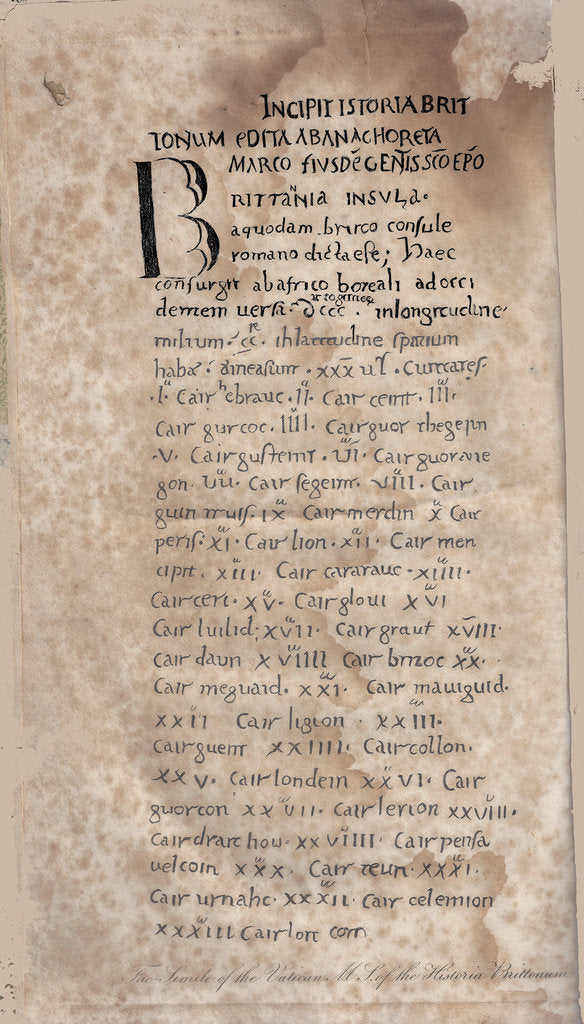 INCIPIT ISTORIA BRIT
TONUM EDITA AB ANACHORETA
MARCO EIUSDĒ GENTIS SCŌ EPŌ
BRITTANNIA INSULA.
a quodam bruco consule
romano dicta est; Haec
consurgit ab africo boreali ad occi
dentem uersā. dccc. in longitudine
milium. cc. in latitudine spatium
habȝ. XXXIII. Ciuitates.
I. Cair hebrauc. II. Cair ceint. III.
Cair gurcoc. IIII. Cair guorthegern
V. Cair gusteint. VI. Cair guoranie
gon. VII. Cair segeint. VIII. Cair
guin truis. IX Cair merdin X Cair
peris. XI. Cair lion. XII. Cair men
cipit. XIII Cair caratauc. XIIII.
Cair ceri. XV. Cair gloui XVI
Cair luilid; XVII. Cair graut XVIII.
Cair daun XVIIII Cair britoc XX.
Cair meguaid. XXI. Cair mauiguid.
XXII Cair ligion. XXIII.
Cair guent XXIIII. Cair collon.
XXV. Cair londein XXVI. Cair
guorcon XXVII. Cair lerion XXVIII.
Cair draithou. XXVIIII. Cair pensa
uelcoin XXX. Cair teun. XXXI.
Cair urnahc. XXXII. Cair celemion
XXXIII Cair loit coit
Fac-Simile of the Vatican M.S. of the Historia Brittonum